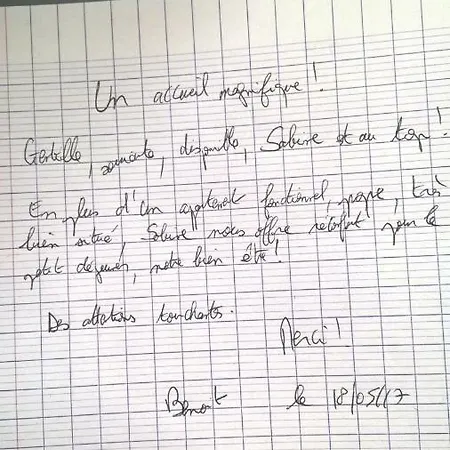 Un accueil magnifique !
Gentille, souriante, disponible, Sabine est au top !
En plus d'un appartement fonctionnel, propre, très
bien situé, Sabine nous offre réconfort pour le
petit déjeuner, notre bien être !
Des attentions touchantes.
Merci !
Benoit le 18/05/17